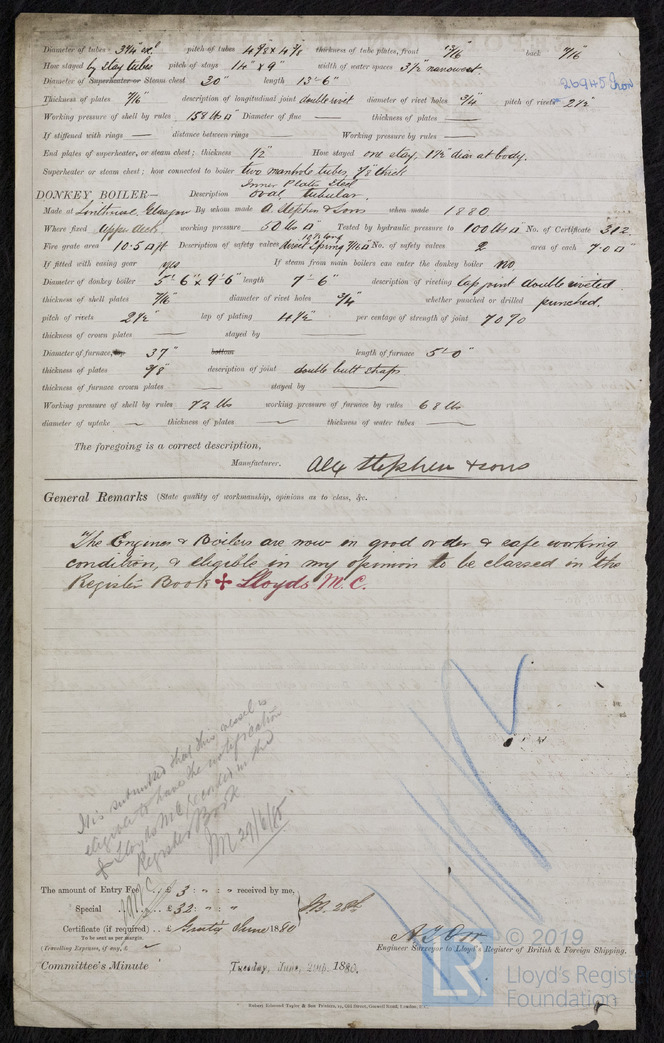 Diameter of tubes 3¼ ex! pitch of tubes 4⅞ x 4⅞ thickness of tube plates, front 13/16 back 7/16
How stayed by stay tubes pitch of stays 14" x 9" width of water spaces 3½ narrowest.
Diameter of Superheater or Steam chest 30" length 13'-6"
26945 Iron
Thickness of plates 7/16" description of longitudinal joint double rivit diameter of rivet holes ¾" pitch of rivets 2½"
Working pressure of shell by rules 158 lbs Diameter of flue — thickness of plates —
If stiffened with rings — distance between rings — Working pressure by rules —
End plates of superheater, or steam chest; thickness ½" How stayed one stay, 1½" diar at body.
Superheater or steam chest; how connected to boiler two manhole tubes, ⅞ thick
Inner Plates Steel
DONKEY BOILER— Description oval tubular.
Made at Linthouse, Glasgow By whom made A. Stephen & Sons when made 1880
Where fixed Upper deck working pressure 50 lbs Tested by hydraulic pressure to 100 lbs No. of Certificate 312
Fire grate area 10.5 ft Description of safety valves direct Spring No. of safety valves 2 area of each 7.0
If fitted with easing gear yes If steam from main boilers can enter the donkey boiler no
Diameter of donkey boiler 5'-6" x 9'-6" length 7'-6" description of riveting lap joint double riveted.
thickness of shell plates 7/16 diameter of rivet holes ¾" whether punched or drilled punched.
pitch of rivets 2½" lap of plating 4½" per centage of strength of joint 70%
thickness of crown plates — stayed by —
Diameter of furnace, top 37" bottom length of furnace 5'-0"
thickness of plates ⅜" description of joint double butt straps
thickness of furnace crown plates — stayed by —
Working pressure of shell by rules 72 lbs working pressure of furnace by rules 68 lbs
diameter of uptake — thickness of plates — thickness of water tubes —
The foregoing is a correct description,
Manufacturer. Alex Stephen & Sons
General Remarks (State quality of workmanship, opinions as to class, &c.
The Engines & Boilers are now in good order & safe working
condition, & eligible in my opinion to be classed in the
Register Book ✠ Lloyds M.C.
It is submitted that this vessel is
eligible to have the notification
✠ Lloyds M.C. recorded in the
Register Book
The amount of Entry Fee .. £ 3 : " : " received by me,
Special .. £ 32 : " : "
Certificate (if required) .. £ June 1880
To be sent as per margin.
(Travelling Expenses, if any, £
Engineer Surveyor to Lloyd's Register of British & Foreign Shipping.
Committee's Minute Tuesday, June, 29th, 1880.
© 2019
LR
Lloyd's Register
Foundation